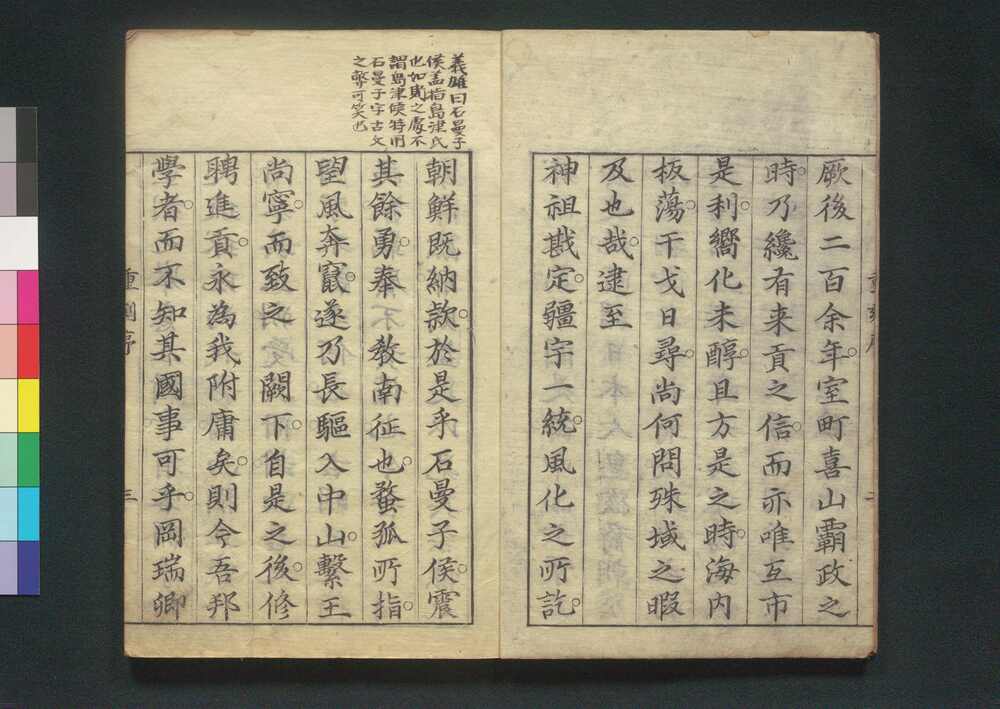 厥後二百余年室町喜山霸政之
時乃纔有来貢之信而亦唯互市
是利嚮化未醇且方是之時海内
板蕩干戈日尋尚何問殊域之暇
及也哉逮至
神祖戡定疆宇一統風化之所訖
義雄曰石曼子
侯盖指島津氏
也如賊之處不
謂島津侯特用
石曼子字古文
之弊可笑也
朝鮮既納款於是乎石曼子侯震
其餘勇奉不教南征也蝥弧所指
望風奔竄遂乃長驅入中山繫王
尚寧而致之闕下自是之後修
聘進貢永為我附庸矣則今吾邦
學者而不知其國事可乎岡瑞卿
重刻序
三